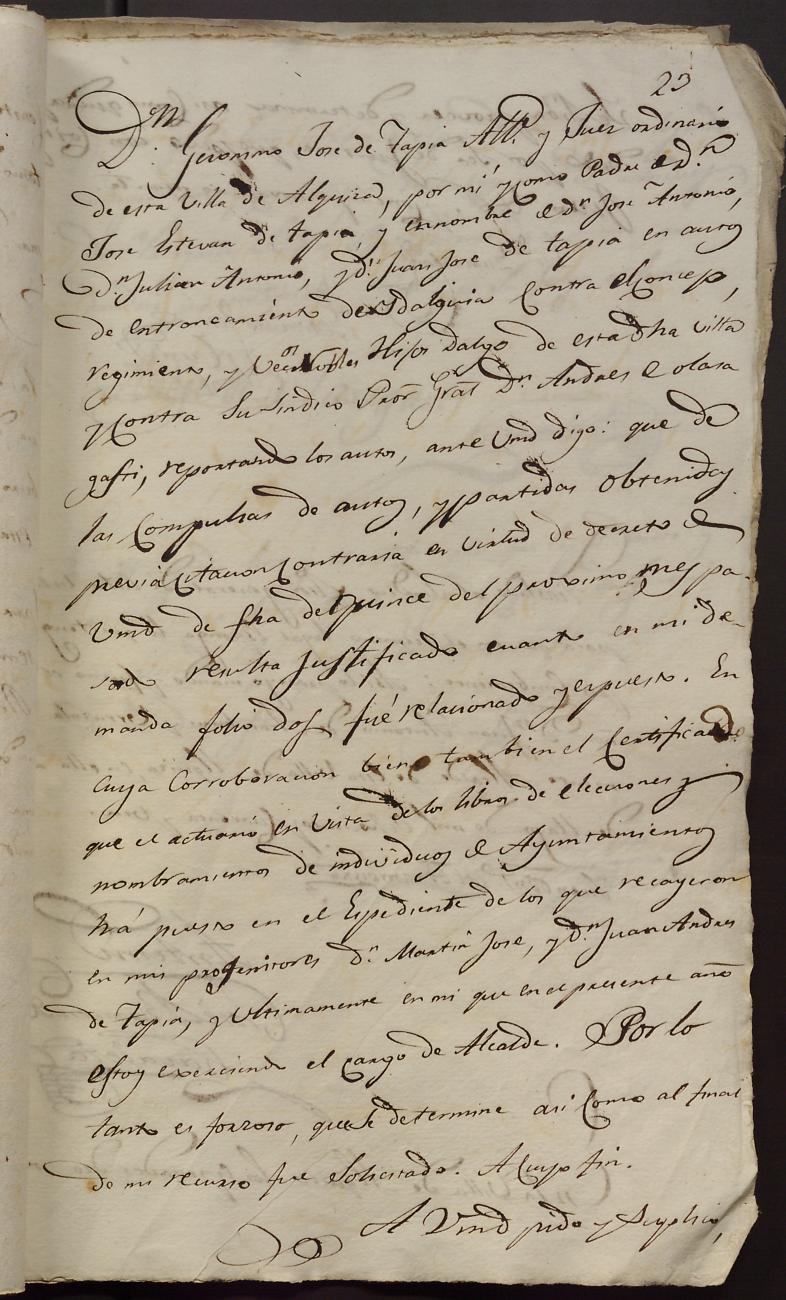 23
Dn. Geronimo Jose de Tapia Alle. y Juez ordinario
de esta Villa de Alquiza, por mi y como Padre de dn.
Jose Estevan de tapia, y ennombre de dn. Jose Antonio,
dn. Julian Antonio, y dn. Juan Jose de tapia en autos
de entroncamiento de Hidalguia contra el Concejo,
regimiento, y Vecos. Nobles Hijos dalgo de esta dha villa
y contra su Sindico Pror. Gral Dn. Andres de olasa
gasti, reportando los autos, ante Vmd digo: que de
las Compulsas de autos, y partidas obtenidas
previa citacion contraria en virtud de decreto de
Vmd de fha del quince del proximo mes pa-
sado resulta justificado cuanto en mi de-
manda folio dos fué relacionado y espuesto. En
cuya corroboracion biene tambien el Certificado
que el actuario en vista de los libros de elecciones y
nombramientos de individuos de Ayuntamientos
há puesto en el Espediente de los que recayeron
en mis progenitores dn. Martin Jose, y dn. Juan Andres
de Tapia, y ultimamente en mi que en el presente año
estoy exerciendo el cargo de Alcalde. Por lo
tanto es forzoso, que se determine asi como al final
de mi recurso fue solicitado. A cuyo fin.
A Vmd pido y suplico,